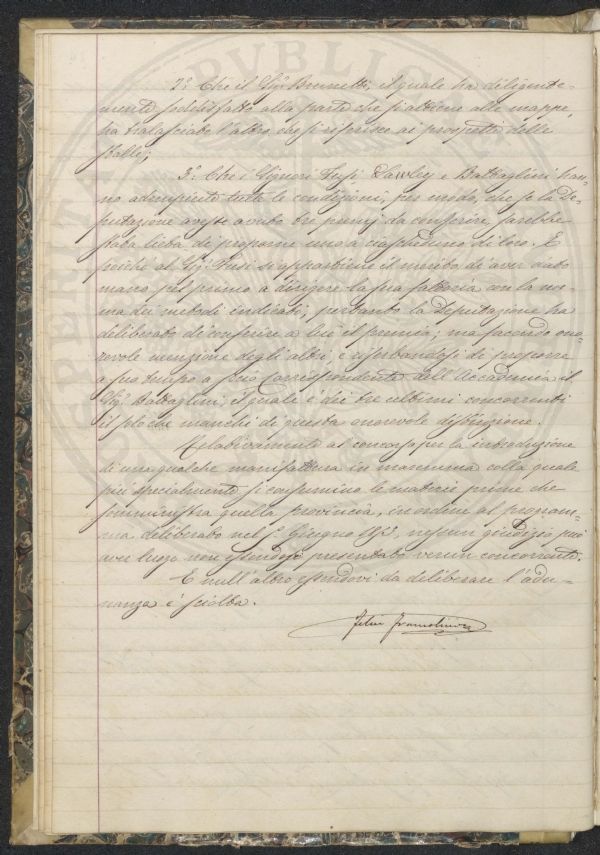 2° Che il Sig.r Brunetti, il quale ha diligente-
mente sodisfatto alla parte che si attiene alle mappe,
ha tralasciato l'altra che si riferisce ai prospetti delle
stalle;
3° Che i Signori Fusi Lawley e Battaglini han-
no adempiuto tutte le condizioni, per modo, che se la De-
putazione avesse avuto tre premj da conferire, sarebbe
stata lieta di proporne uno a ciascheduno di loro. E
poichè al Sig.r Fusi si appartiene il merito di aver dato
mano pel primo a dirigere la sua fattoria con la nor-
ma dei metodi indicati, pertanto la Deputazione ha
deliberato di conferire a lui il premio; ma facendo ono-
revole menzione degli altri, e riserbandosi di proporre
a suo tempo a Socio Corrispondente dell'Accademia il
Sig.r Battaglini, il quale è dei tre ultimi concorrenti
il solo che manchi di questa onorevole distinzione.
Relativamente al concorso per la introduzione
di una qualche manifattura in maremma colla quale
più specialmente si consumino le materie prime che
somministra quella provincia, in ordine al program-
ma deliberato nel 1° Giugno 1853, nessun giudizio può
aver luogo non essendosi presentato verun concorrente.
E null'altro essendovi da deliberare l'adu-
nanza è sciolta.
REI PUBLICAE
PROSPERITATI